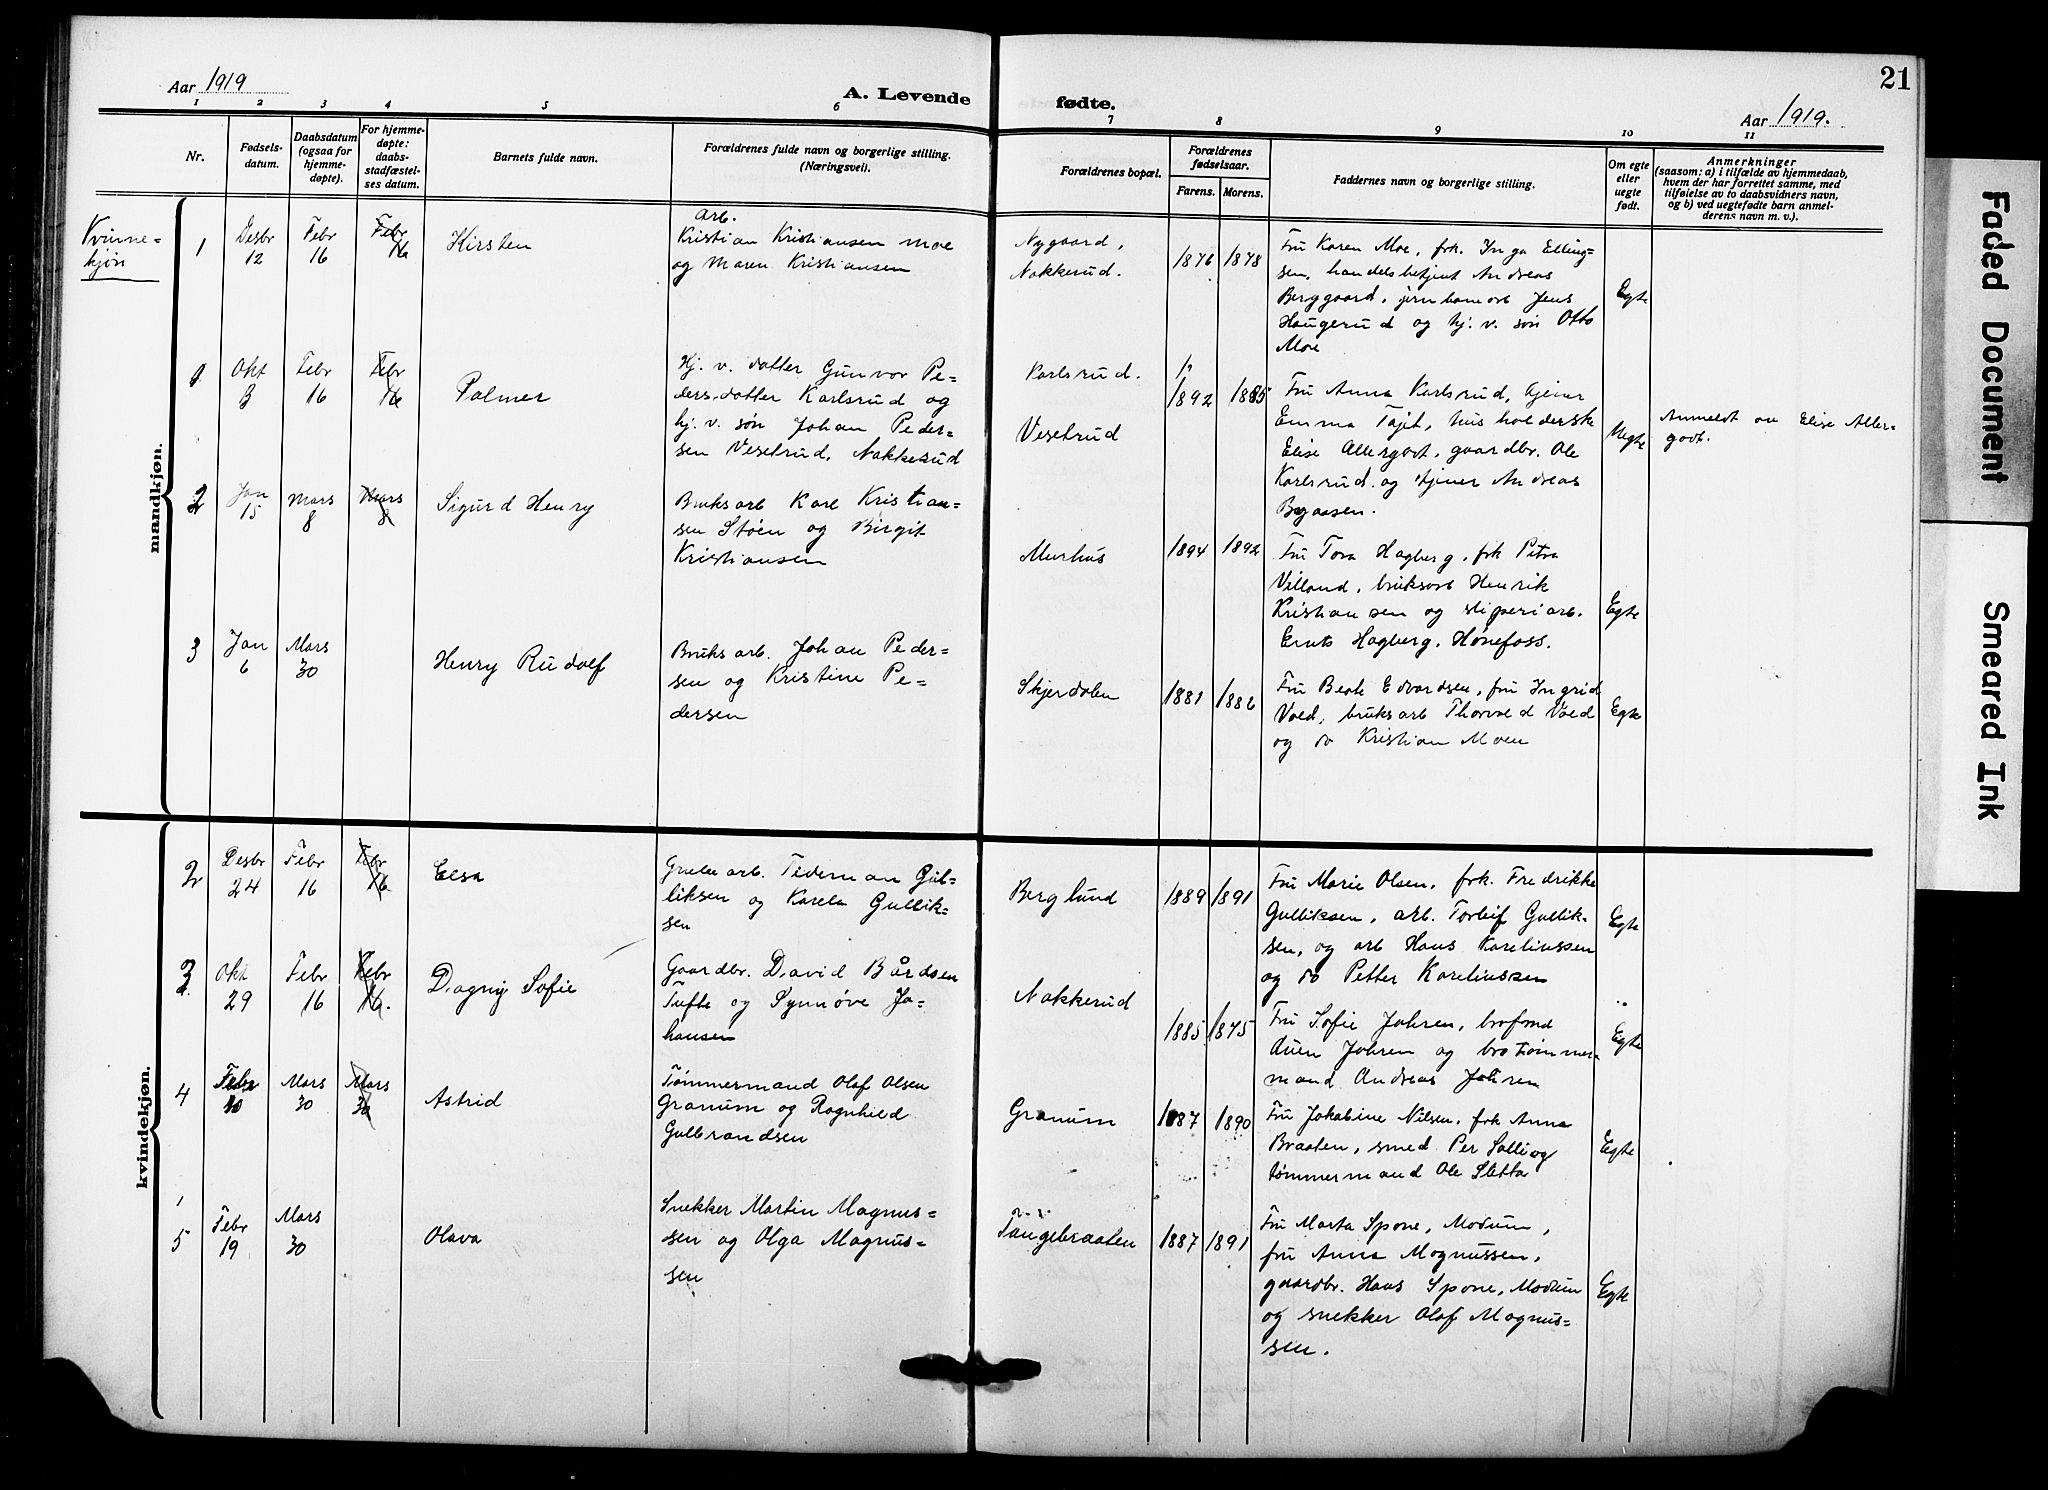 21
Aar 1919
A. Levende fødte.
Aar 1919.
1 2 3 4 5 6 7 8 9 10 11
Nr.
Fødsels-
datum.
Daabsdatum
(ogsaa for
hjemme-
døpte).
For hjemme-
døpte:
daabs-
stadfæstel-
ses datum.
Barnets fulde navn.
Forældrenes fulde navn og borgerlige stilling.
(Næringsvei).
Forældrenes bopæl.
Forældrenes
fødselsaar.
Farens. Morens.
Faddernes navn og borgerlige stilling.
Om egte
eller
uegte
født.
Anmerkninger
(saasom: a) i tilfælde av hjemmedaab,
hvem der har forrettet samme, med
tilføielse av to daabsvidners navn,
og b) ved uegtefødte barn anmel-
derens navn m. v.).
mandkjøn.
Kvinne-
kjøn
1
Desbr
12
Febr
16
Febr
16
Kirsten
Arb.
Kristian Kristiansen Moe
og Maren Kristiansen
Nygaard,
Nakkerud.
1876 1878
Fru Karen Moe, frk. Inga Elling-
sen, handelsbetjent Andreas
Berggaard, jernbanearb Jens
Haugerud og hj. v. søn Otto
Moe
Egte
1
Okt
3
Febr
16
Febr
16
Palmer
Hj. v. datter Gunvor Pe-
dersdatter Karlsrud og
hj. v. søn Johan Peder-
sen Vesetrud, Nakkerud
Karlsrud.
Vesetrud
1892 1885
Fru Anna Karlsrud, tjener
Emma Tajet, husholderske
Elise Allergodt, gaardbr. Ole
Karlsrud og tjener Andreas
Bgaasen.
Uegte
Anmeldt av Elise Aller-
godt.
2
Jan
15
Mars
8
Mars
8
Sigurd Henry
Bruksarb Karl Kristian-
sen Støen og Birgit
Kristiansen
Murhus
1894 1892
Fru Tora Hagberg, frk Petra
Villand, bruksarb Henrik
Kristiansen og sliperiarb.
Ernts Hagberg, Hønefoss.
Egte
3
Jan
6
Mars
30
Henry Rudolf
Bruksarb. Johan Peder-
sen og Kristine Pe-
dersen
Skjerdalen
1881 1886
Fru Beate Edvardsen, fru Ingrid
Vold, bruksarb Thorvald Vold
og do Kristian Moen
Egte
kvindekjøn.
2
Desbr
24
Febr
16
Febr
16
Elsa
Grubearb. Tideman Gul-
liksen og Karela Gullik-
sen
Berglund
1889 1891
Fru Marie Olsen, frk. Fredrikke
Gulliksen, arb. Torleif Gullik-
sen, og arb Hans Kareliussen
og do Petter Kareliussen
Egte
3
Okt
29
Febr
16
Febr
16.
Dagny Sofie
Gaardbr. David Bårdsen
Tufte og Synnøve Jo-
hansen
Nakkerud
1885 1875
Fru Sofie Johren,
Johren og brotømmer-
mand Andreas Johren
Egte
4
Febr
Mars
30
Mars
30
Astrid
Tømmermand Olaf Olsen
Granum og Ragnhild
Gulbrandsen
Granum
1887 1890
Fru Jokabine Nilsen, frk Anna
Braaten, smed Per Sølli og
tømmermand Ole Sletta
Egte
5
Febr
19
Mars
30
Olava
Snekker Martin Magnus-
sen og Olga Magnus-
sen
Tangebraaten
1887 1891
Fru Marta Spone, Modum,
fru Anna Magnussen,
gaardbr. Hans Spone, Modum
og snekker Olaf Magnus-
sen.
Egte
Faded Document
Smeared Ink